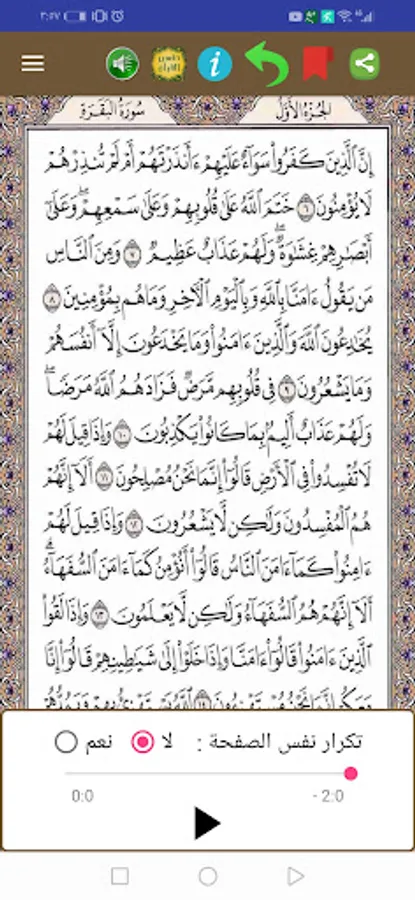 ٢:٥٧
سُورَةُ البَقَرَةِ
الجُزءُ الأَوَّلُ
إِنَّ ٱلَّذِينَ كَفَرُوا۟ سَوَآءٌ عَلَيْهِمْ ءَأَنذَرْتَهُمْ أَمْ لَمْ تُنذِرْهُمْ
لَا يُؤْمِنُونَ ٦ خَتَمَ ٱللَّهُ عَلَىٰ قُلُوبِهِمْ وَعَلَىٰ سَمْعِهِمْ ۖ وَعَلَىٰٓ
أَبْصَٰرِهِمْ غِشَٰوَةٌ ۖ وَلَهُمْ عَذَابٌ عَظِيمٌ ٧ وَمِنَ ٱلنَّاسِ
مَن يَقُولُ ءَامَنَّا بِٱللَّهِ وَبِٱلْيَوْمِ ٱلْـَٔاخِرِ وَمَا هُم بِمُؤْمِنِينَ ٨
يُخَٰدِعُونَ ٱللَّهَ وَٱلَّذِينَ ءَامَنُوا۟ وَمَا يَخْدَعُونَ إِلَّآ أَنفُسَهُمْ
وَمَا يَشْعُرُونَ ٩ فِى قُلُوبِهِم مَّرَضٌ فَزَادَهُمُ ٱللَّهُ مَرَضًا ۖ
وَلَهُمْ عَذَابٌ أَلِيمٌۢ بِمَا كَانُوا۟ يَكْذِبُونَ ١٠ وَإِذَا قِيلَ لَهُمْ
لَا تُفْسِدُوا۟ فِى ٱلْأَرْضِ قَالُوٓا۟ إِنَّمَا نَحْنُ مُصْلِحُونَ ١١ أَلَآ إِنَّهُمْ
هُمُ ٱلْمُفْسِدُونَ وَلَٰكِن لَّا يَشْعُرُونَ ١٢ وَإِذَا قِيلَ لَهُمْ
ءَامِنُوا۟ كَمَآ ءَامَنَ ٱلنَّاسُ قَالُوٓا۟ أَنُؤْمِنُ كَمَآ ءَامَنَ ٱلسُّفَهَآءُ ۗ
أَلَآ إِنَّهُمْ هُمُ ٱلسُّفَهَآءُ وَلَٰكِن لَّا يَعْلَمُونَ ١٣ وَإِذَا لَقُوا۟
ٱلَّذِينَ ءَامَنُوا۟ قَالُوٓا۟ ءَامَنَّا وَإِذَا خَلَوْا۟ إِلَىٰ شَيَٰطِينِهِمْ قَالُوٓا۟ إِنَّا
مَعَكُمْ إِنَّمَا نَحْنُ مُسْتَهْزِءُونَ ١٤ ٱللَّهُ يَسْتَهْزِئُ بِهِمْ وَيَمُدُّهُمْ
تكرار نفس الصفحة : لا نعم
0:0
- 2:0